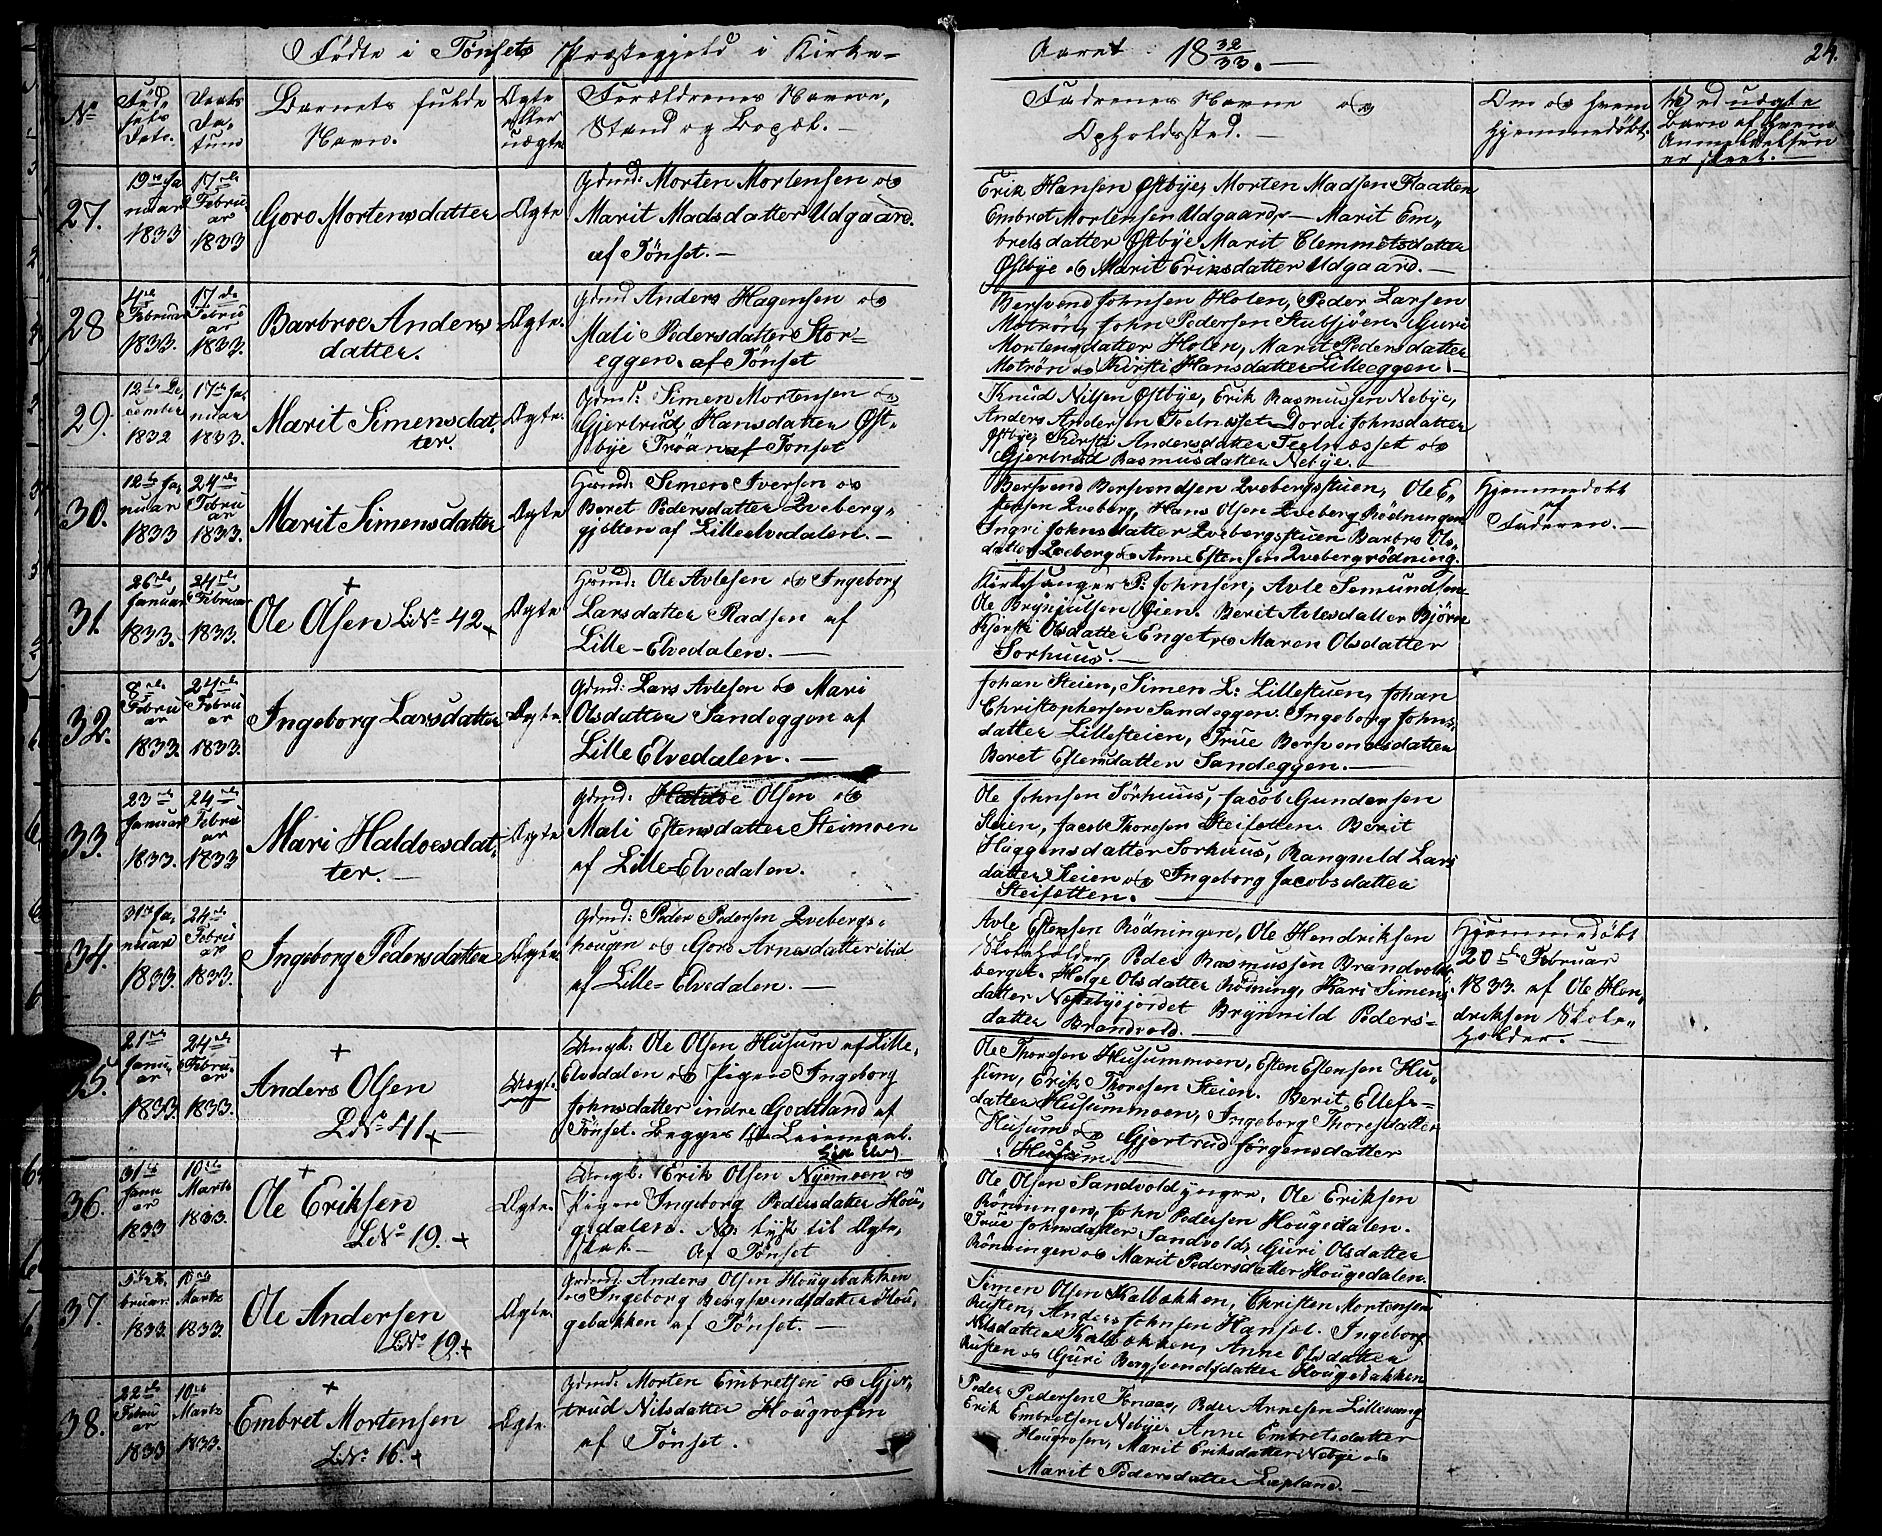 Fødte i Tønsets Præstegjeld i Kirke-
Aaret 18 32/33. —
24.
No
Fød-
sels
Dato.
Daabs
Da-
tum
Barnets fulde
Navn.
Ægte
eller
uægte
Forældrenes Navne,
Stand og Bopæl. —
Fadrenes Navne og
Opholdssted. —
Om og hvem
Hjemmedøbt.
Ved uægte
Barn af hvem
Anmeldelsen
er skeet. —
27.
19de Ja
nuar
1833
17de
Febru
ar
1833
Goro Mortensdatter
Ægte
Gdmd: Morten Mortensen og
Marit Madsdatter Udgaard.
af Tönset. —
Erik Hansen Østbye, Morten Madsen Flaatten
Embret Mortensen Udgaard, — Marit Em-
bretsdatter Østbye Marit Clemmetsdatter
Østbye og Marit Eriksdatter Udgaard. —
28
4de
Februar
1833.
17de
Febru
ar
1833.
Barbroe Anders
datter.
Ægte.
Gdmd Anders Hagensen og
Mali Pedersdatter Stor-
eggen. af Tönset
Bersvend Johnsen Holen, Peder Larsen
Motrön, John Pedersen Stubsjöen. Guri
Mortensdatter Holen, Marit Pedersdatter
Motrön og Kirsti Hansdatter Lilleeggen. —
29.
12te De
cember
1832
17de Ja,
nuar
1833.
Marit Simensdat,
ter.
Ægte.
Gdmd: Simen Mortensen og
Gjertrud Hansdatter Øst-
bye Tröan af Tönset
Knud Nilsen Østbye, Erik Rasmussen Nebye,
Anders Andersen Telnesset Dordi Johnsdatter
Østbye Kirsti Andersdatter Telnæsset og
Gjertrud Rasmusdatter Nebye. —
30.
12te Ja,
nuar
1833
24de
Febru
ar
1833.
Marit Simensdatter
Ægte
Huusmd: Simen Iversen og
Beret Pedersdatter Qveberg-
gjelten af Lilleelvedalen. —
Bersvend Bersvendsen Qvebergstuen, Ole E-
stensen Qveberg, Hans Olsen Qveberg Rödningen
Ingri Johnsdatter Qvebergstuen Barbro Ols-
datter Qveberg og Anne Estensen Qvebergrödning.
Hjemmedøbt
af
Faderen. —
31.
26de
Januar
1833.
24de
Februar
1833.
+
Ole Olsen LNo 42 +
Ægte
Huusmd: Ole Avlesen og Ingeborg
Larsdatter Radsen af
Lille-Elvedalen. —
Kirkesanger P. Johnsen, Avle Semundsen
Ole Brynjulsen Øien. Berit Avlesdatter Bjørn
Kjersti Olsdatter Enget, og Maren Olsdatter
Sorhuus. —
32.
8de
Febru
ar
1833.
24de
Febru
ar
1833.
Ingeborg Larsdatter
Ægte.
Gdmd: Lars Avlesen og Mari
Olsdatter Sandeggen af
Lille Elvedalen. —
Johan Steien, Simen L: Lillestuen, Johan
Christophersen Sandeggen. Ingeborg Johns-
datter Lillesteien, True Bersvendsdatter
Beret Estensdatter Sandeggen. —
33.
23de
Januar
1833.
24de
Febru
ar
1833
Mari Haldoesdat,
ter. —
Ægte
Gdmd: Haldoe Olsen og
Mali Estensdatter Steimoen
af Lille-Elvedalen.
Ole Johnsen Sörhuus, Jacob Gundersen
Steien, Jacob Thoresen Steisetten. Berit
Haggensdatter Sorhuus, Rangnild Lars
datter Steien og Ingeborg Jacobsdatter
Steisetten. —
34.
31te Ja,
nuar
1833.
24de
Febru
ar
1833.
Ingeborg Pedersdatter
Ægte.
Gdmd: Peder Pedersen Qvebergs-
haugen og Goro Arnesdatter ibid
af Lille-Elvedalen. —
Avle Estensen Rödningen, Ole Hendriksen
Skoleholder, Peder Rasmussen Brandvold
berget. Helge Olsdatter Rödning, Kari Simens
datter Nordbyejordet Brynnild Peders-
datter Brandvold. —
Hjemmedøbt
20de Februar
1833. af Ole Hen,
driksen Skole-
holder. —
35.
21de
Janu-
ar
1833.
24de
Febru-
ar
1833.
+
Anders Olsen
LNo 41 +
Uægte.
Ungk: Ole Olsen Husum af Lille-
Elvedalen og Pigen Ingeborg
Johnsdatter indre Godtland af
Tönset. Begges 1ste Leiermaal.
Ole Thoresen Husummoen, Esten Estensen Hu-
sum, Erik Thoresen Steien. Berit Ellefs-
datter Husummoen, Ingeborg Thoresdatter
Husum og Gjertrud Jörgensdatter
Husum. —
36.
31te
Janu
ar
1833
10de
Marts
1833.
+
Ole Eriksen
LNo 19. +
Ægte.
Lille Elve
Ungk. Erik Olsen Nyemoen og
Pigen Ingeborg Pedersdatter Hou-
gedalen. NB. lyst til Ægte,
skab — Af Tönset
Ole Olsen Sandvold yngre, Ole Eriksen
Rönningen, John Pedersen Hougedalen.
True Johnsdatter Sandvold, Guri Olsdatter
Rönningen og Marit Pedersdatter Hougedalen.
37.
5te Fe,
bruar.
1833.
10de
Marts
1833.
Ole Andersen
LNo 19. +
Ægte.
Gdmd: Anders Olsen Hougebakken
og Ingeborg Bersvendsdatter Hou-
gebakken af Tönset. —
Simen Olsen Kalbakken, Christen Mortensen
Rusten, Anders Johnsen Hansæl. Ingeborg
Nilsdatter Kalbakken, Anne Olsdatter
Rusten og Guri Bergsvendsdatter Hougebakken
38.
22de
Febru
ar
1833
10de
Marts
1833.
+
Embret Mortensen
LNo 16. +
Ægte.
Gdmd: Morten Embretsen og Gjer-
trud Nilsdatter Hougrosen
af Tönset.
Peder Pedersen Knaas, Peder Arnesen Lillevang
Erik Embretsen Nebye. Anne Embretsdatter
Hougrosen, Marit Eriksdatter Nebye og
Marit Pedersdatter Lapland. —